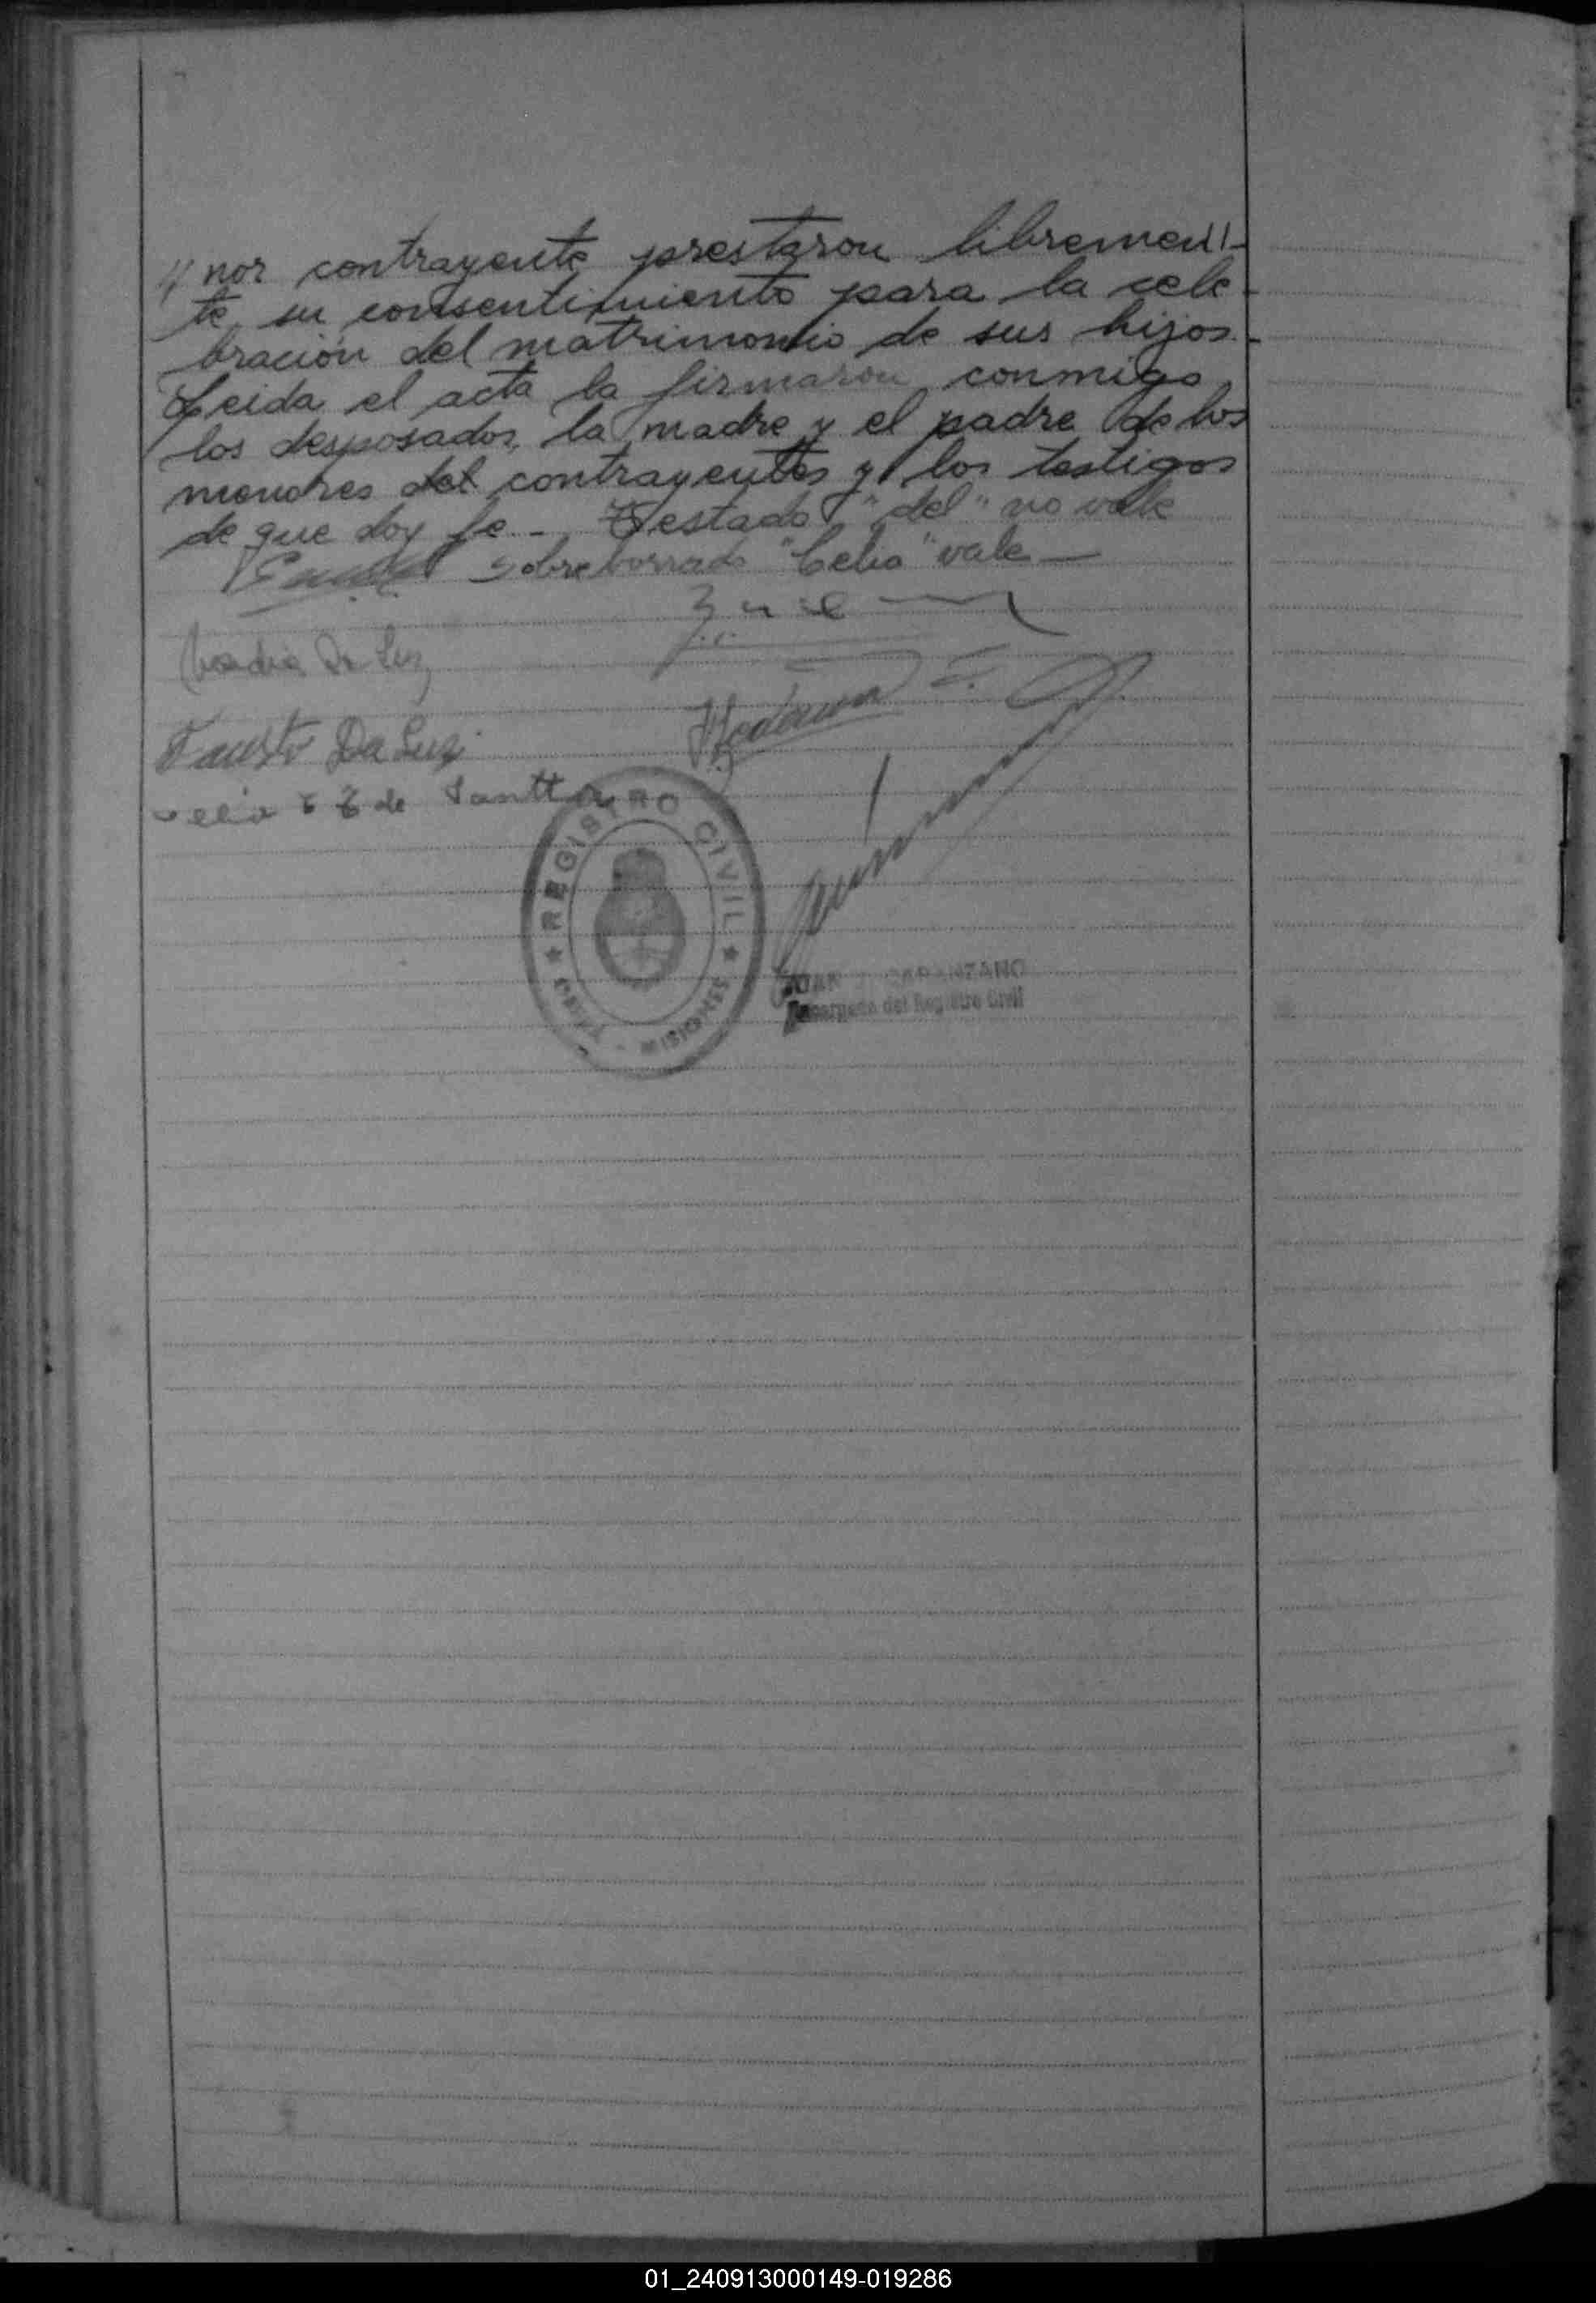 // nor contrayente prestaron libremen//-
te su consentimiento para la cele-
bración del matrimonio de sus hijos.-
Leida el acta la firmaron conmigo
los desposados, la madre y el padre de los
menores del contrayentes y los testigos
de que doy fe.- Testado "del" no vale
Sobreborrado "Celia" vale —
Da Luz
Fausto Da Luz
de
REGISTRO CIVIL
MISIONES
Encargado del Registro Civil
01_240913000149-019286